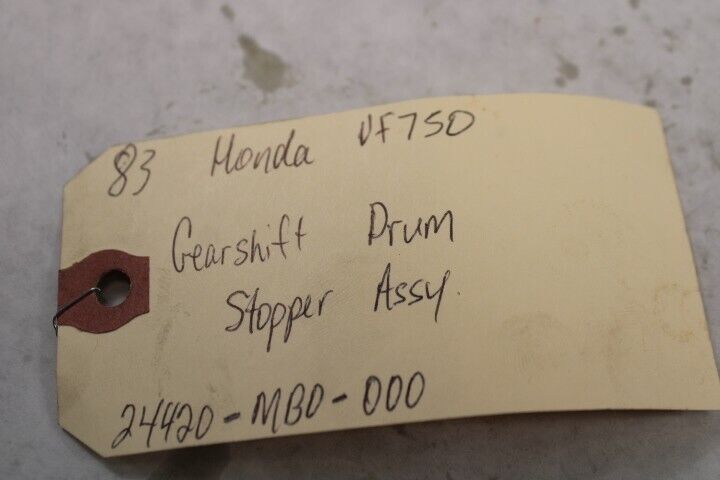 83 Honda VF750
Gearshift Drum
Stopper Assy.
24420-MB0-000